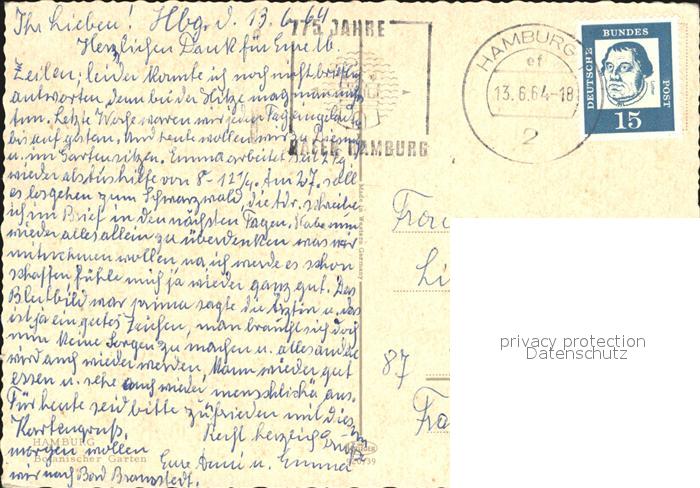 Ihr Lieben! Hbg. d. 13.6.64
Herzlichen Dank für Eure lb.
Zeilen; leider konnte ich noch nicht brieflich
antworten, denn bei der Hitze mag man nichts
tun. Letzte Woche waren wir jeden Tag eingeladen
bis auf gestern. Und heute wollen wir zu
u. im Garten sitzen. Emma arbeitet seit
wieder als Aushilfe von 8-12 Am 27. soll
es losgehen zum Schwarzwald, die Adr. schreibe
ich im Brief in den nächsten Tagen. Habe nun
wieder alles allein zu überdenken was wir
mitnehmen wollen na ich werde es schon
schaffen fühle mich ja wieder ganz gut. Das
Blutbild war prima sagte die Ärztin u. das
ist ja ein gutes Zeichen, man braucht sich doch
nun keine Sorgen zu machen u. alles andere
wird auch wieder werden. Kann wieder gut
essen u. sehe auch wieder menschlich aus.
Für heute seid bitte zufrieden mit dies.
Kartengruß. Recht herzlich grüßt
morgen wollen Eure u. Emma
wir nach Bad Bramstedt.
HAMBURG
Botanischer Garten
775 JAHRE
HAFEN HAMBURG
HAMBURG
ef
13.6.64-18
2
DEUTSCHE BUNDES POST
15
Made in Western Germany
Frau
Li
87
Fra
privacy protection
Datenschutz